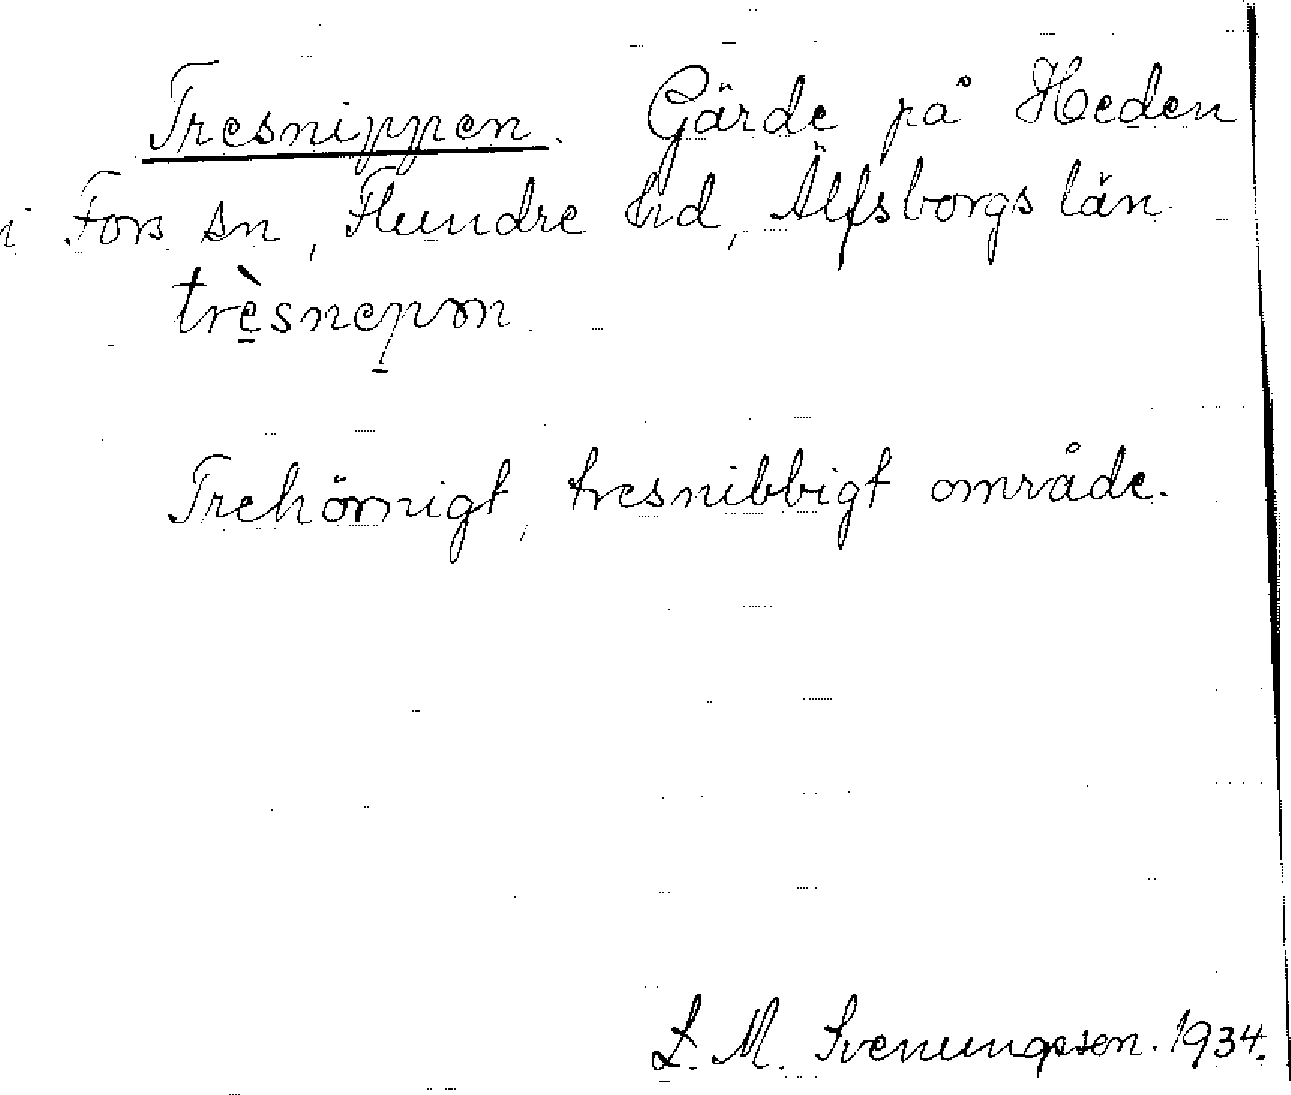 Tresnippen. Gärde på Heden
i Fors sn, Flundre hd, Älfsborgs län
trèsnepon
Trehörnigt, tresnibbigt område.
L. M. Svenungsson. 1934.